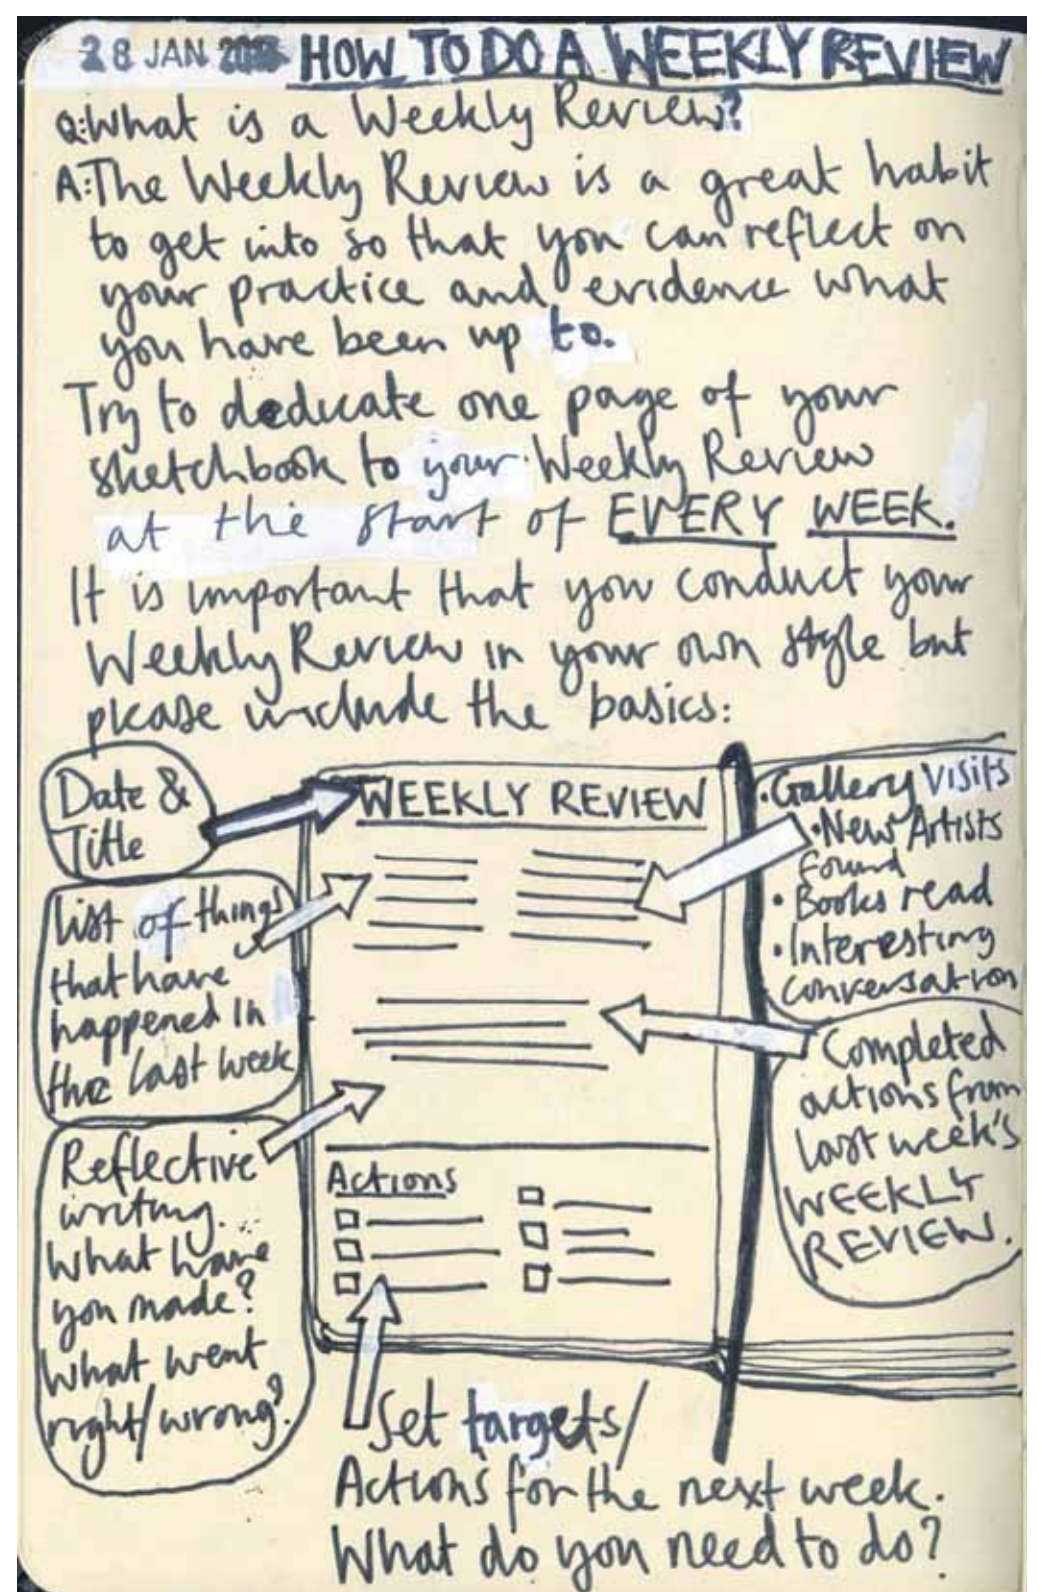 28 JAN HOW TO DO A WEEKLY REVIEW
Q: What is a Weekly Review?
A: The Weekly Review is a great habit
to get into so that you can reflect on
your practice and evidence what
you have been up to.
Try to dedicate one page of your
sketchbook to your Weekly Review
at the start of EVERY WEEK.
It is important that you conduct your
Weekly Review in your own style but
please include the basics:
Date &
Title
List of things
that have
happened in
the last week
Reflective
writing.
What have
you made?
What went
right/wrong?
WEEKLY REVIEW
Actions
• Gallery Visits
• New Artists
found
• Books read
• Interesting
conversation
Completed
actions from
last week's
WEEKLY
REVIEW.
Set targets/
Actions for the next week.
What do you need to do?